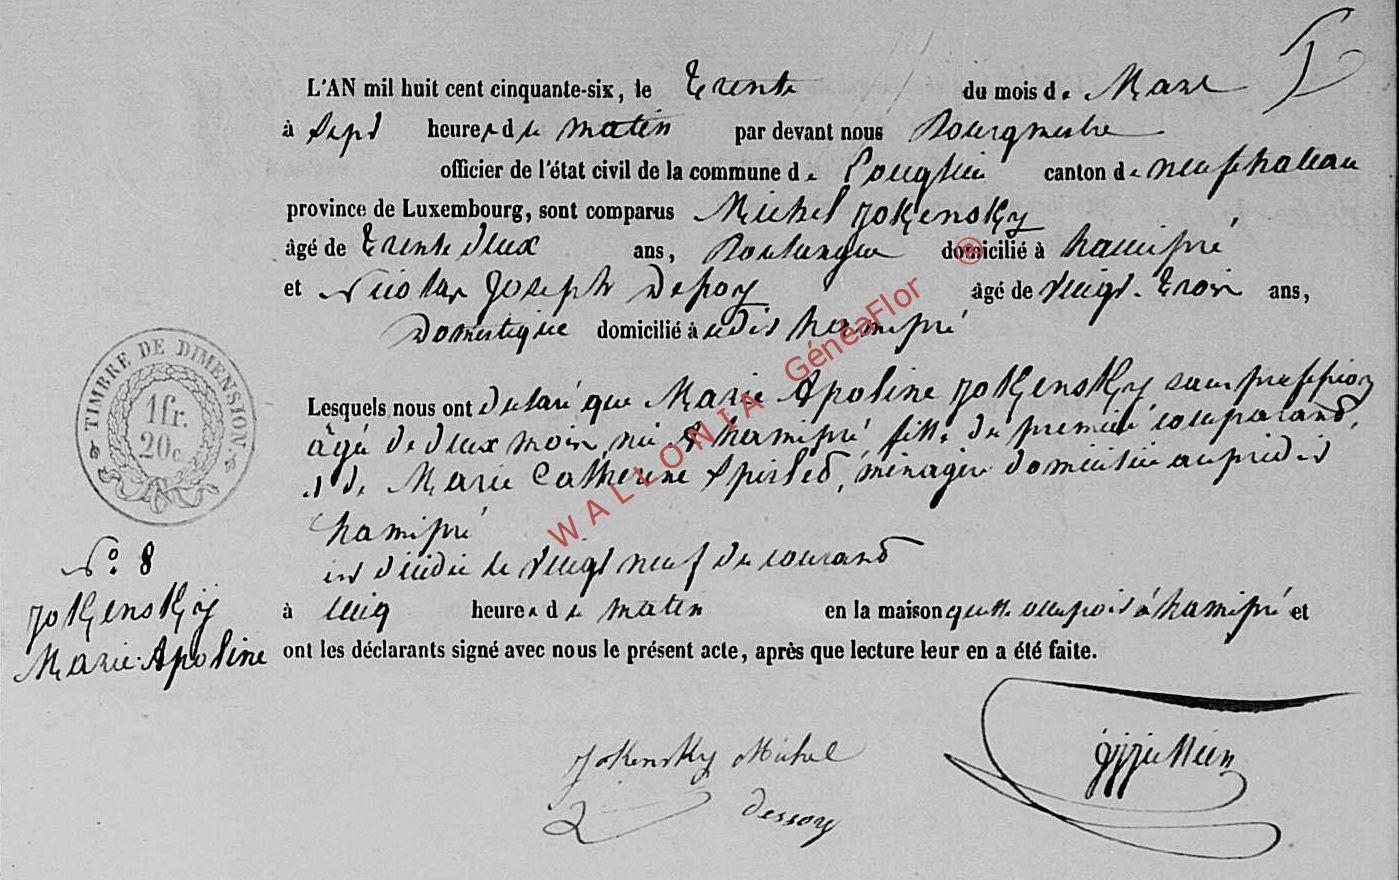 L'AN mil huit cent cinquante-six, le Trente du mois de Mars
à Sept heures du matin par devant nous Bourgmestre
officier de l'état civil de la commune de Longlier canton de neufchateau
province de Luxembourg, sont comparus Michel Jokensky
âgé de Trente deux ans, Boulanger domicilié à hamipré
et Nicolas Joseph Defoy âgé de vingt-trois ans,
Domestique domicilié à udit hamipré
Lesquels nous ont déclaré que Marie Apoline Jokensky sans proffession
âgé de deux mois, né à hamipré fille du premier comparand,
et de Marie Catherine , ménagère domiciliée au prédit
hamipré
est décédée le vingt neuf du courand
à cinq heures du matin en la maison qu'elle occupoit à hamipré et
ont les déclarants signé avec nous le présent acte, après que lecture leur en a été faite.
TIMBRE DE DIMENSION.
1 fr.
20 c.
N° 8
Jokensky
Marie Apoline
Jokensky Michel
Dessoy
WALLONIA GénéaFlor ®